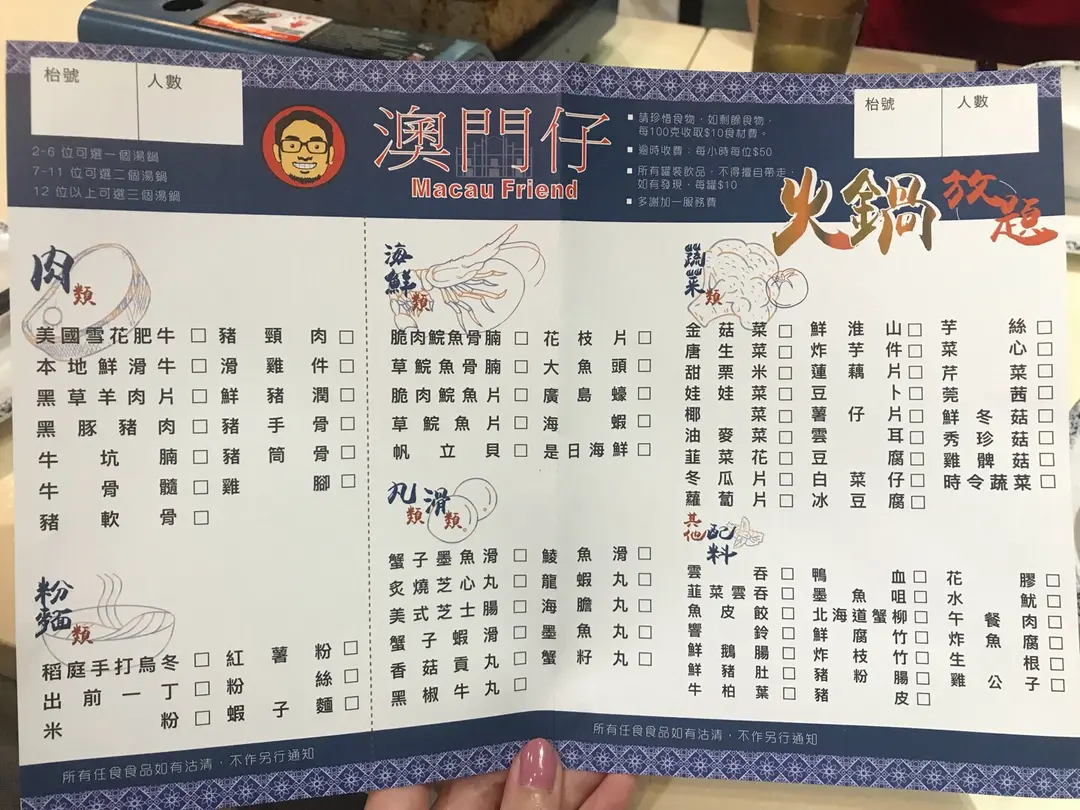 枱號 人數
2-6 位可選一個湯鍋
7-11 位可選二個湯鍋
12 位以上可選三個湯鍋
澳門仔
Macau Friend
請珍惜食物，如剩餘食物，
每100克收取$10食材費。
逾時收費：每小時每位$50
所有罐裝飲品，不得擅自帶走，
如有發現，每罐$10
多謝加一服務費
枱號 人數
火鍋放題
肉類
美國雪花肥牛 豬頸肉
本地鮮滑牛 滑雞件
黑草羊肉片 鮮豬潤
黑豚豬肉 豬手骨
牛坑腩 豬筒骨
牛骨髓 雞腳
豬軟骨
粉麵類
稻庭手打烏冬 紅薯粉
出前一丁 粉絲
米粉 蝦子麵
海鮮類
脆肉鯇魚骨腩 花枝片
草鯇魚骨腩 大魚頭
脆肉鯇魚片 廣島蠔
草鯇魚片 海蝦
帆立貝 是日海鮮
丸類 滑類
蟹子墨魚滑 鯪魚滑
炙燒芝心丸 龍蝦丸
美式芝士腸 海膽丸
蟹子蝦滑 墨魚丸
香菇貢丸 蟹籽丸
黑椒牛丸
蔬菜類
金菇菜 鮮淮山 芋絲
唐生菜 炸芋件 菜心
甜粟米 蓮藕片 芹菜
娃娃菜 豆卜 莞茜
椰菜 薯仔片 鮮冬菇
油麥菜 雲耳 秀珍菇
韮菜花 豆腐 雞髀菇
冬瓜片 白菜仔 時令蔬菜
蘿蔔片 冰豆腐
其他配料
雲吞 鴨血 花膠
韮菜雲吞 墨魚咀 水魷
魚皮餃 北海道蟹柳 午餐肉
響鈴 鮮腐竹 炸魚腐
鮮鵝腸 炸枝竹 生根
鮮豬肚 豬粉腸 雞公子
牛柏葉 豬皮
所有任食食品如有沽清，不作另行通知
所有任食食品如有沽清，不作另行通知